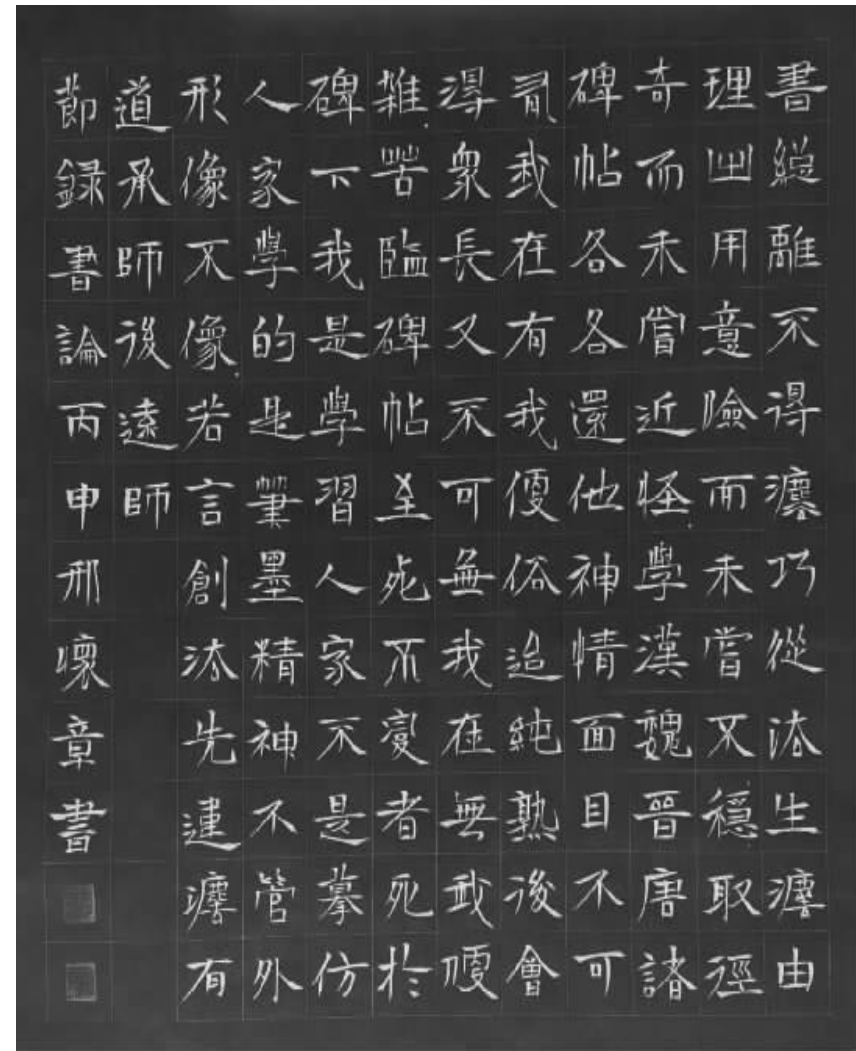 書縱離不得灋巧從法生灋由
理出用意險而未嘗不穩取徑
奇而未嘗近怪學漢魏晉唐諸
碑帖各各還他神情面目不可
有我在有我便俗迨純熟後會
得衆長又不可無我在無我便
雜苦臨碑帖至死不變者死於
碑下我是學習人家不是摹仿
人家學的是筆墨精神不管外
形像不像若言創法先連灋有
道承師後遠師
節録書論丙申邢懷章書